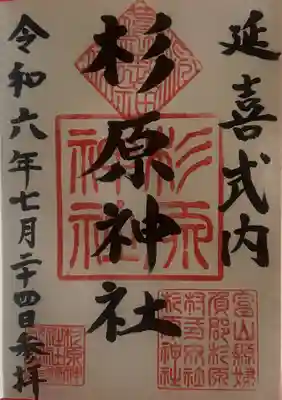 延喜式内
杉原神社
令和六年七月二十四日参拝
杉原
神社
富山縣婦
負郡杉原
神社